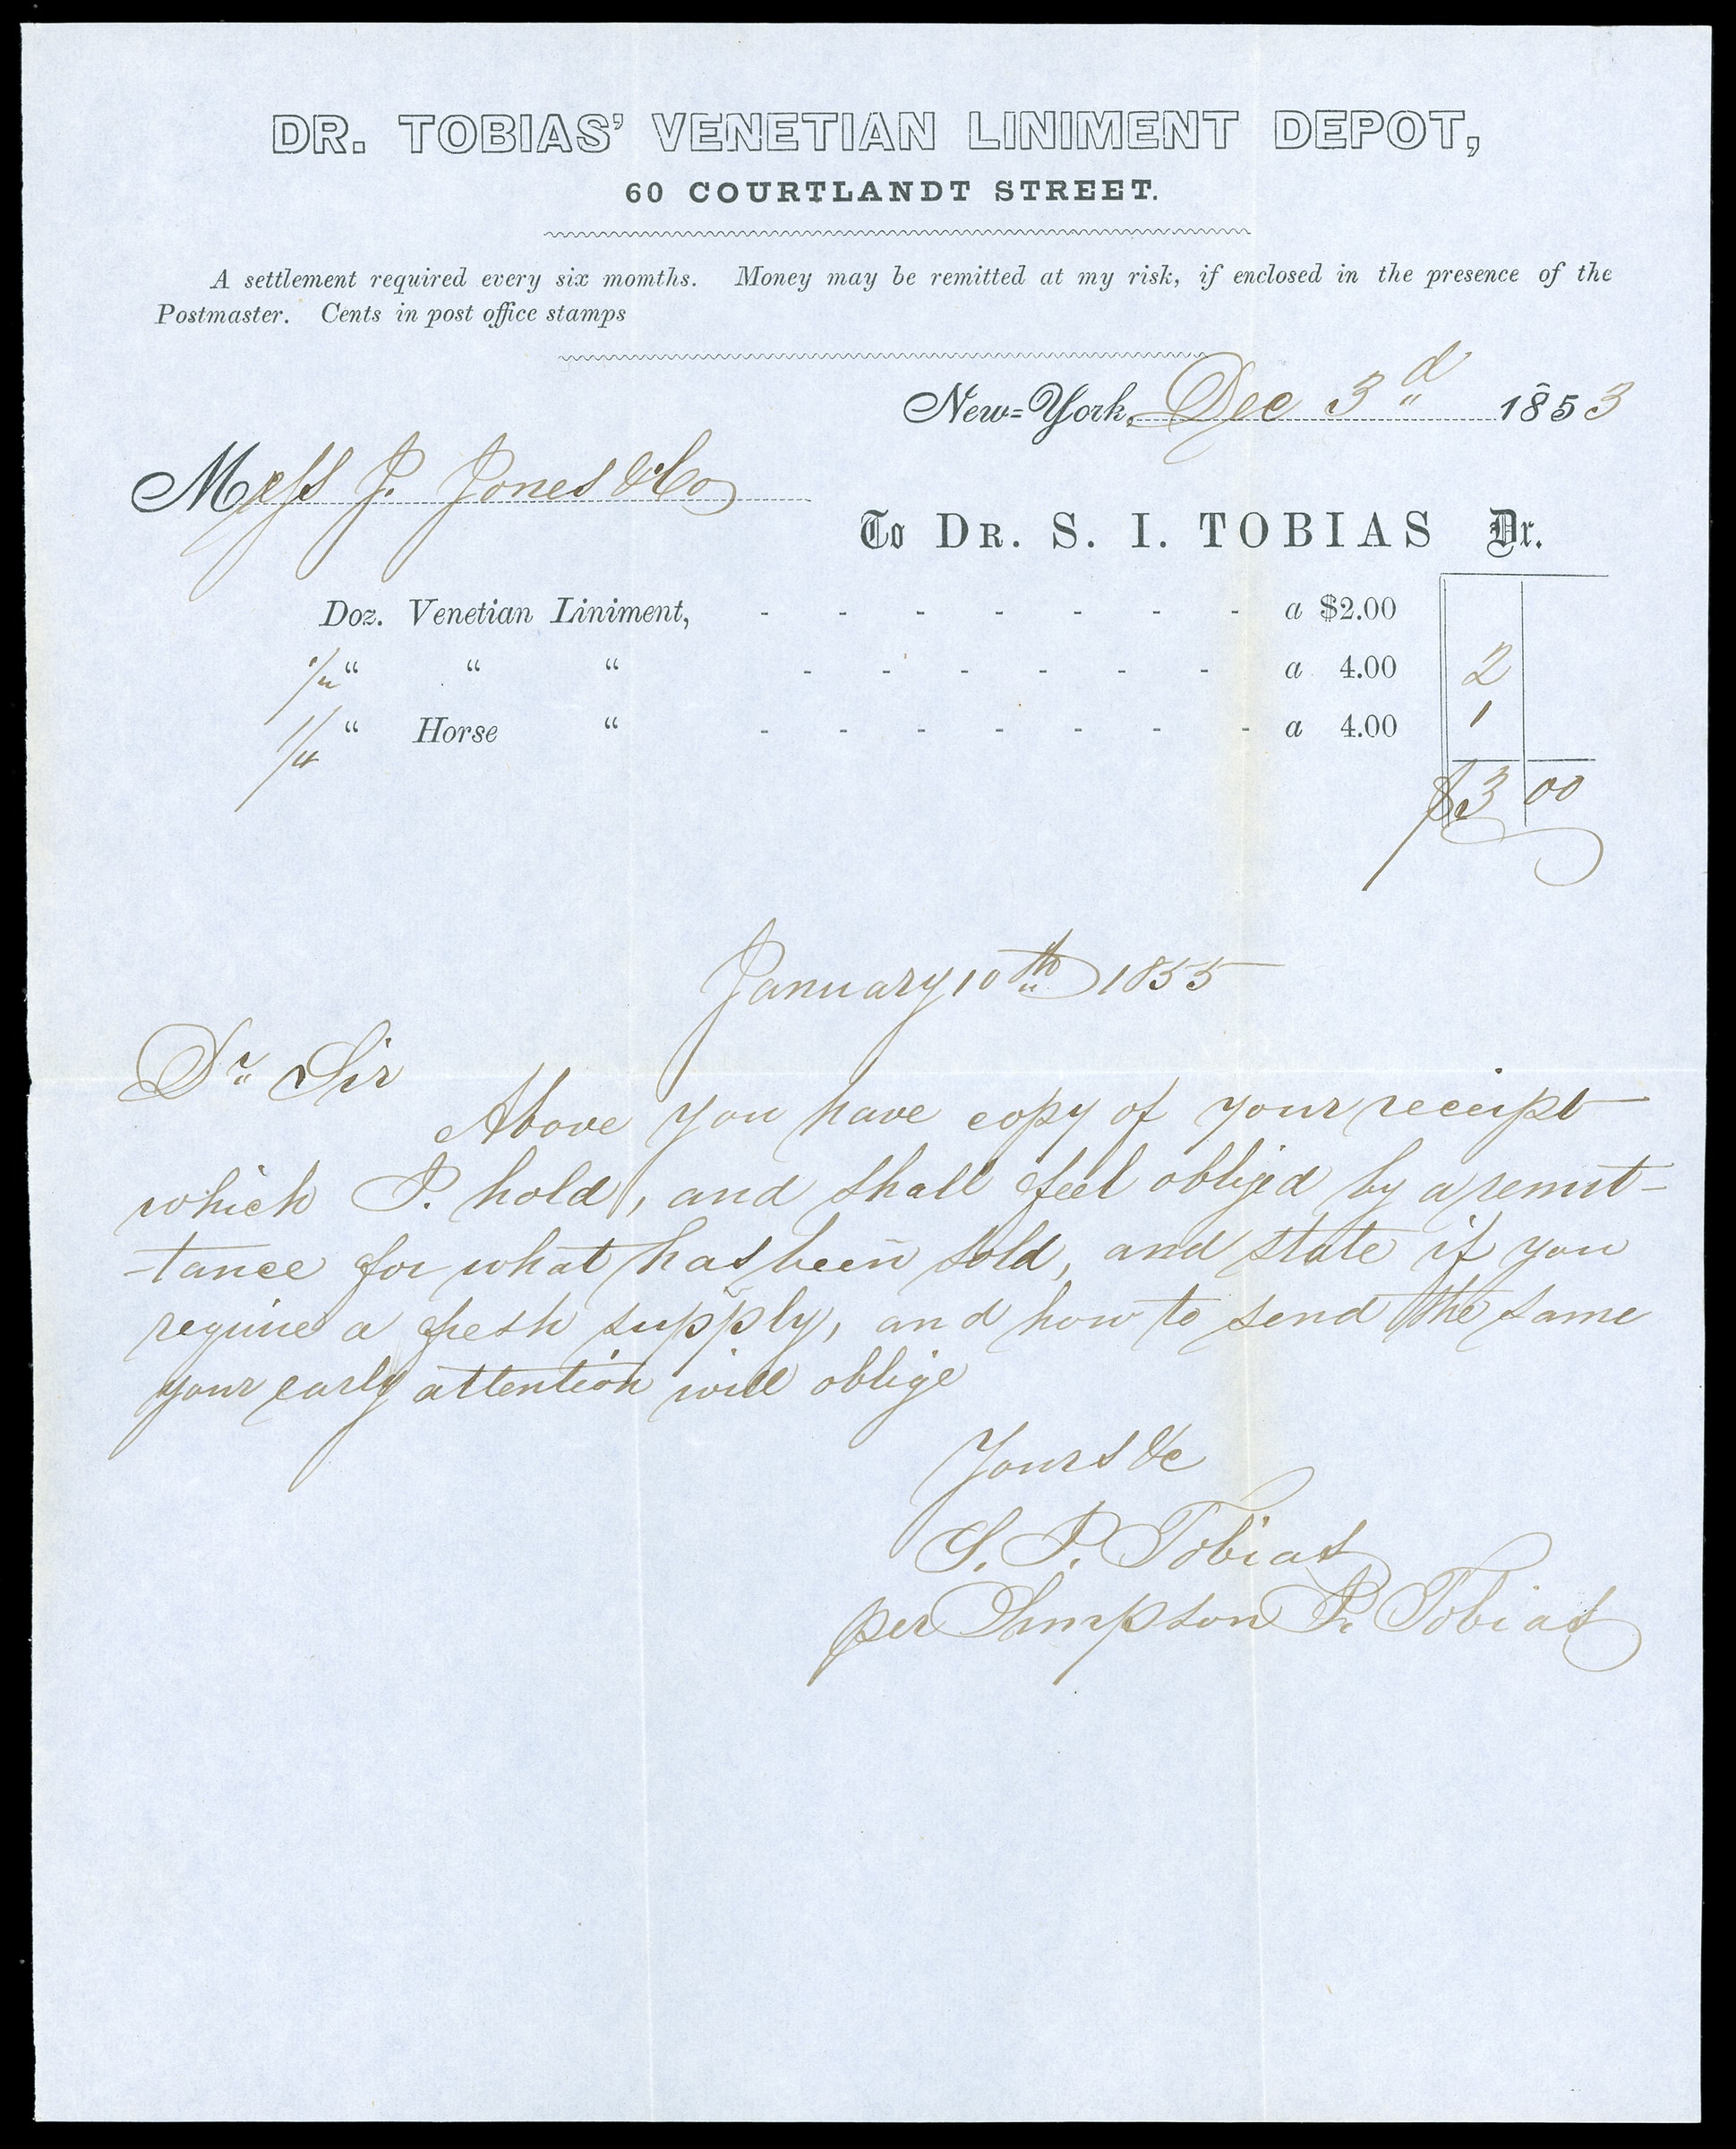 DR. TOBIAS' VENETIAN LINIMENT DEPOT,
60 COURTLANDT STREET.
A settlement required every six momths. Money may be remitted at my risk, if enclosed in the presence of the
Postmaster. Cents in post office stamps
New-York, Dec 3d 1853
Mess J. Jones & Co
To DR. S. I. TOBIAS Dr.
Doz. Venetian Liniment, - - - - - - - a $2.00
1/2 " " " - - - - - - a 4.00 2
1/4 " Horse " - - - - - - - a 4.00 1
$3 00
January 10th 1855
Dr Sir
Above you have copy of your receipt
which I hold, and shall feel obliged by a remit-
-tance for what has been sold, and state if you
require a fresh supply, and how to send the same
your early attention will oblige
Yours &c
S. I. Tobias
per Simpson P. Tobias